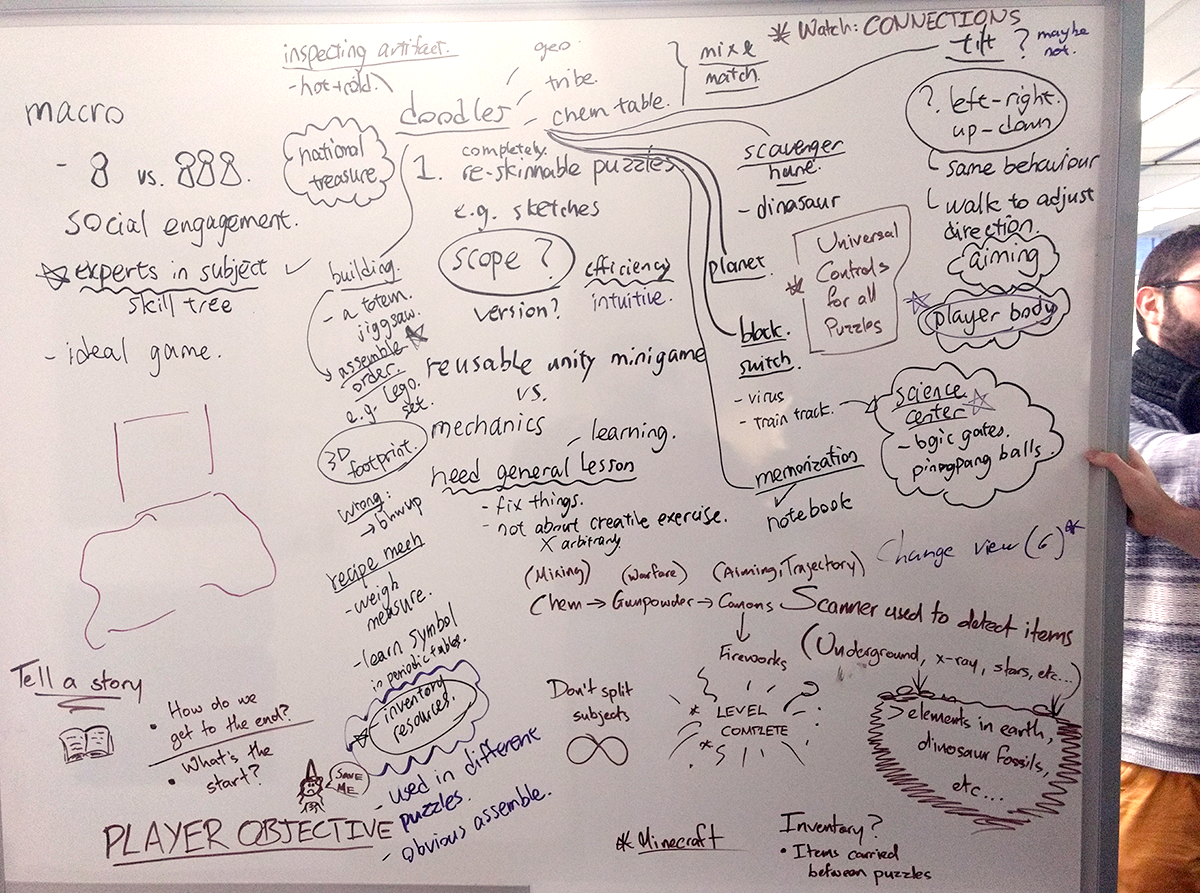 macro
- 8 vs. 888.
social engagement.
experts in subject ✓
skill tree
- ideal game.
inspecting artifact.
- hot + cold.
national
treasure
doodles
geo
tribe.
- chem table.
mix &
match
* Watch: CONNECTIONS
tilt ? maybe
not.
? left-right.
up-down
same behaviour
walk to adjust
direction.
aiming
player body
1. completely
re-skinnable puzzles.
e.g. sketches
scope?
version?
efficiency
intuitive.
reusable unity minigame
vs.
mechanics
- learning.
need general lesson
- fix things.
- not about creative exercise.
X arbitrary
building.
- a totem.
jiggsaw.
assemble
order.
e.g. Lego.
set.
3D
footprint.
wrong:
→ blowup
recipe mech
- weigh
measure.
- learn symbol
in periodic tables.
- inventory
resources.
- used in different
puzzles.
- obvious assemble.
scavenger
hune.
- dinasaur
planet.
* Universal
Controls
for all
Puzzles
block.
switch.
- virus
- train track.
science
center
- logic gates.
pingpang balls.
memorization
✓
notebook
Change view (6)*
(Mixing) (Warfare) (Aiming, Trajectory)
Chem → Gunpowder → Canons
Fireworks
Scanner used to detect items
(Underground, x-ray, stars, etc...)
> elements in earth,
dinosaur fossils,
etc...
Don't split
subjects
* LEVEL
COMPLETE
Tell a story
• How do we
get to the end?
• What's the
start?
SAVE
ME
PLAYER OBJECTIVE
* Minecraft
Inventory?
• Items carried
between puzzles